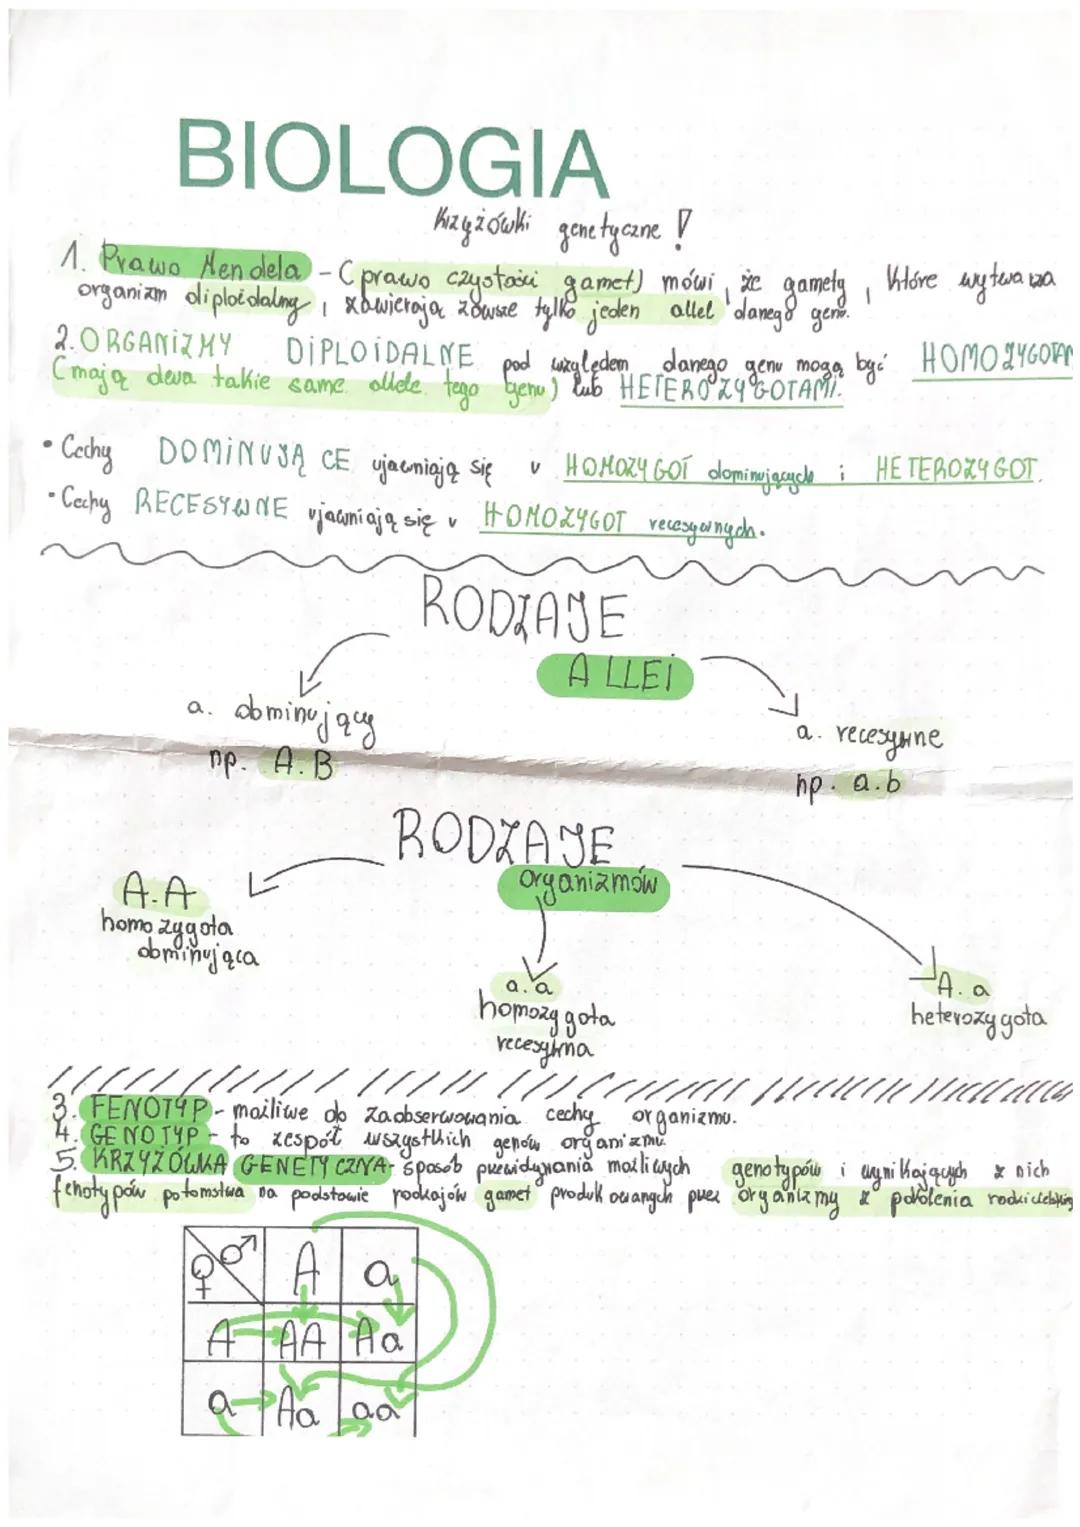 BIOLOGIA
Krzyżówki genetyczne !
1. Prawo Mendela - (prawo czystości gamet) mówi, że gamety, które wytwarza
organizm diploidalny, zawierają zawsze tylko jeden allel danego genu.
2. ORGANIZMY DIPLOIDALNE pod względem danego genu mogą być HOMOZYGOTAM
(mają dwa takie same allele tego genu) lub HETEROZYGOTAMI.
• Cechy DOMINUJĄCE ujawniają się u HOMOZYGOT dominujących i HETEROZYGOT.
• Cechy RECESYWNE ujawniają się u HOMOZYGOT recesywnych.
RODZAJE
ALLEI
a. dominujący
np. A.B
a. recesywne
np. a.b
RODZAJE
organizmów
A.A
homozygota
dominująca
a.a
homozygota
recesywna
A.a
heterozygota
3. FENOTYP - możliwe do zaobserwowania cechy organizmu.
4. GENOTYP - to zespół wszystkich genów organizmu.
5. KRZYŻÓWKA GENETYCZNA - sposób przewidywania możliwych genotypów i wynikających z nich
fenotypów potomstwa na podstawie rodzajów gamet produkowanych przez organizmy z pokolenia rodzicielskieg
♀ ♂ A a
A AA Aa
a Aa aa